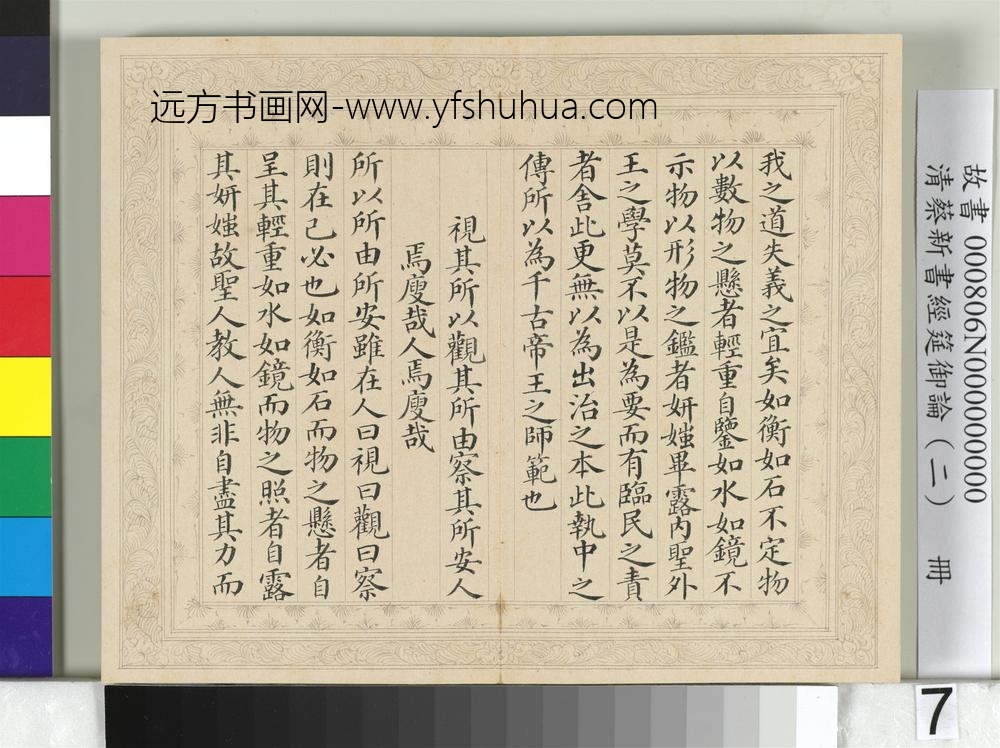 远方书画网-www.yfshuhua.com
我之道失義之宜矣如衡如石不定物
以數物之懸者輕重自鑒如水如鏡不
示物以形物之鑑者妍媸畢露内聖外
王之學莫不以是為要而有臨民之責
者舍此更無以為出治之本此執中之
傳所以為千古帝王之師範也
視其所以觀其所由察其所安人
焉廋哉人焉廋哉
所以所由所安雖在人曰視曰觀曰察
則在己必也如衡如石而物之懸者自
呈其輕重如水如鏡而物之照者自露
其妍媸故聖人教人無非自盡其力而
故書 000806N000000000
清蔡新書經筵御論(二) 冊
7